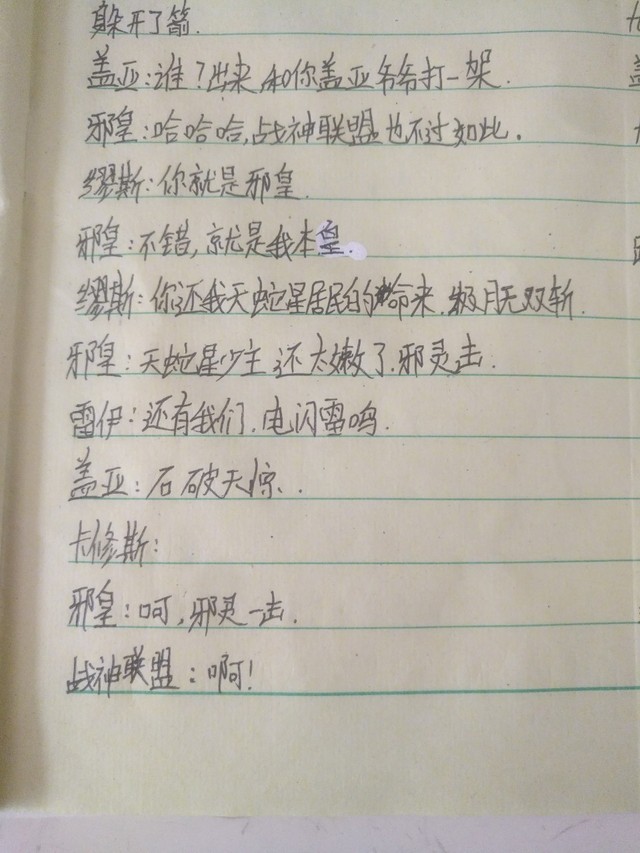 躲开了箭.
盖亚:谁?出来和你盖亚爷爷打一架.
邪皇:哈哈哈,战神联盟也不过如此.
缪斯:你就是邪皇.
邪皇:不错,就是我本皇.
缪斯:你还我天蛇星居民的命来.极月无双斩.
邪皇:天蛇星少主还太嫩了.邪灵击.
雷伊:还有我们.电闪雷鸣.
盖亚:石破天惊.
卡修斯:
邪皇:呵,邪灵一击.
战神联盟:啊!